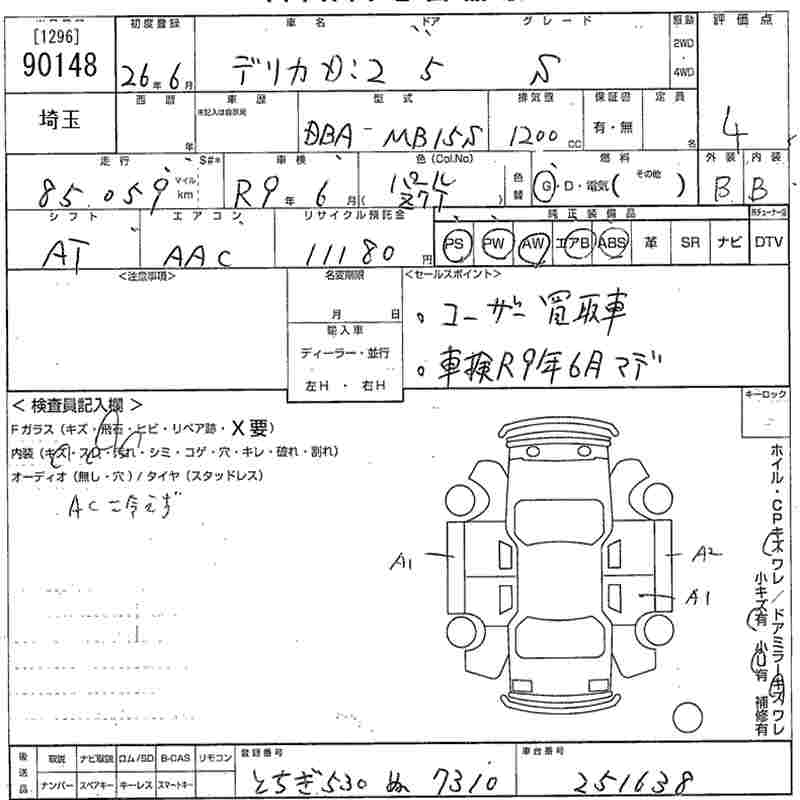 [1296]
90148
初度登録
26年6月
車名
デリカD:2
ドア
5
グレード
S
駆動
2WD
4WD
評価点
4
埼玉
西暦
年
車歴
未記入は自家用
型式
DBA-MB15S
排気量
1200cc
保証書
有・無
定員
名
走行
85,059
マイル
km
S#*
車検
R9年6月
色(Col.No)
色替
燃料
G・D・電気( その他 )
外装
B
内装
B
シフト
AT
エアコン
AAC
リサイクル預託金
11180円
純正装備品
PS PW AW エアB ABS 革 SR ナビ DTV
<注意事項>
名変期限
月 日
輸入車
ディーラー・並行
左H ・ 右H
<セールスポイント>
・ユーザー買取車
・車検R9年6月マデ
< 検査員記入欄 >
Fガラス(キズ・飛石・ヒビ・リペア跡・X要)
内装(キズ・スレ・汚れ・シミ・コゲ・穴・キレ・破れ・割れ)
オーディオ(無し・穴)/タイヤ(スタッドレス)
AC冷えず
キーロック
A1
A2
A1
ホイル・CPキズワレ/ドアミラーキズワレ
小キズ有 小U有 補修有
後送品
取説 ナビ取説 ロム/SD B-CAS リモコン
ナンバー スペアキー キーレス スマートキー
登録番号
とちぎ530 ぬ 7310
車台番号
251638